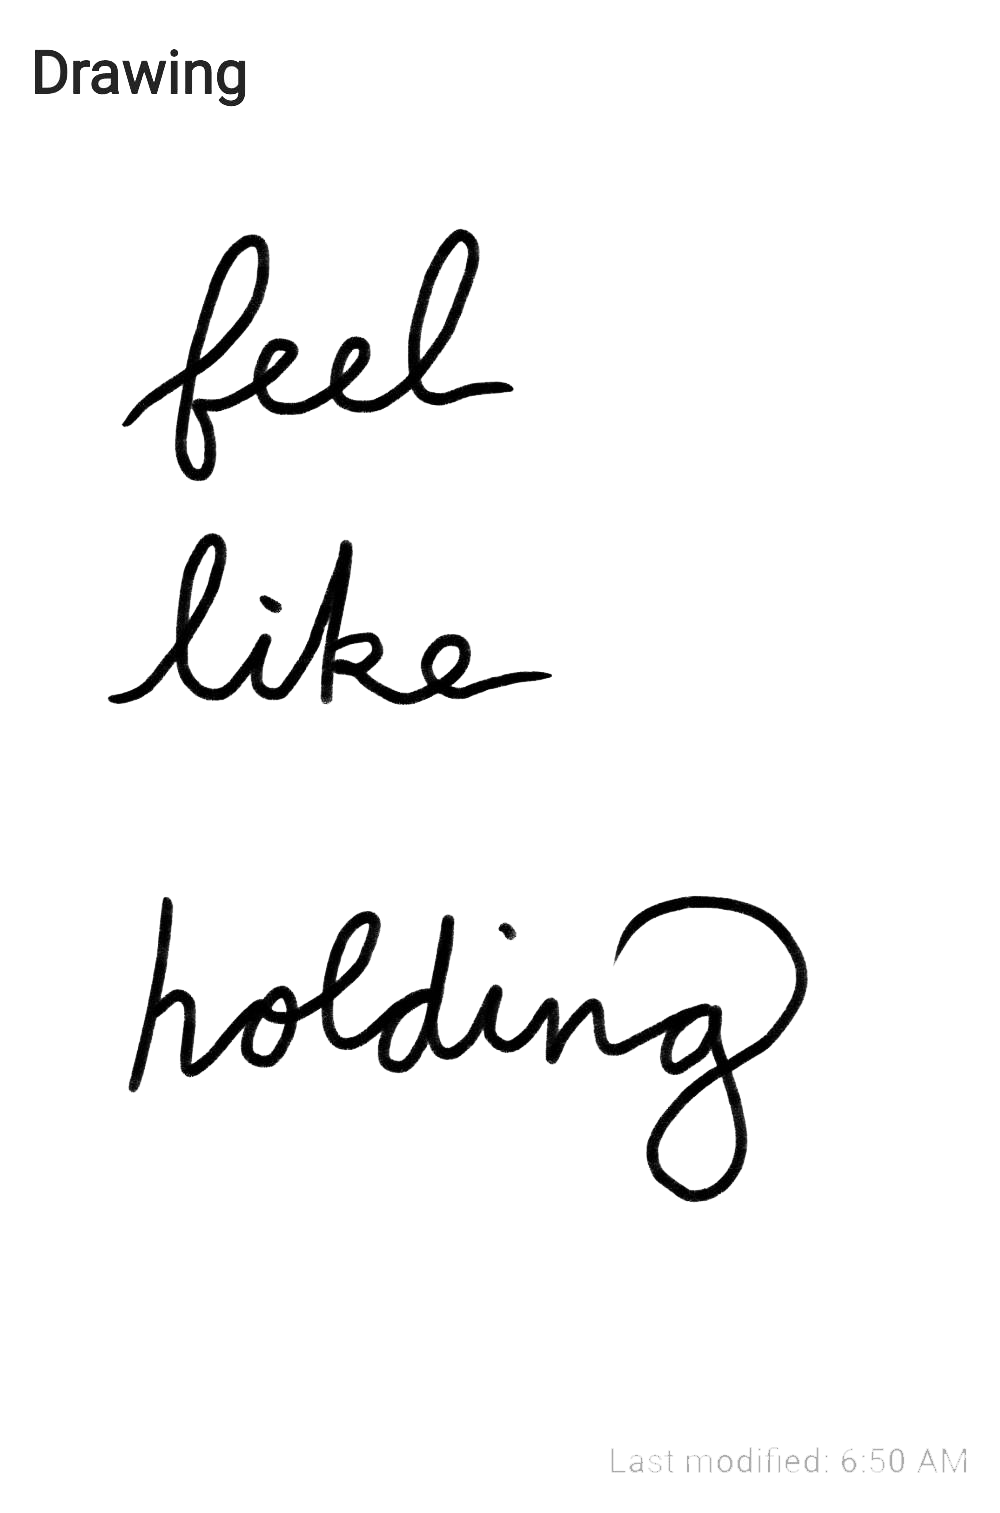 Drawing
feel
like
holding
Last modified: 6:50 AM